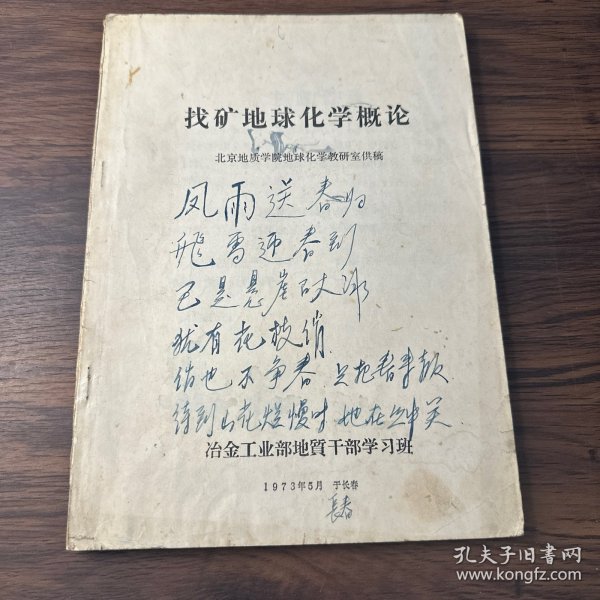 找矿地球化学概论
北京地质学院地球化学教研室供稿
风雨送春归
飛雪迎春到
已是悬崖百丈冰
犹有花枝俏
俏也不争春 只把春来报
待到山花烂慢时 她在丛中笑
冶金工业部地質干部学习班
1973年5月 于长春
長春
孔夫子旧书网
www.kongfz.com